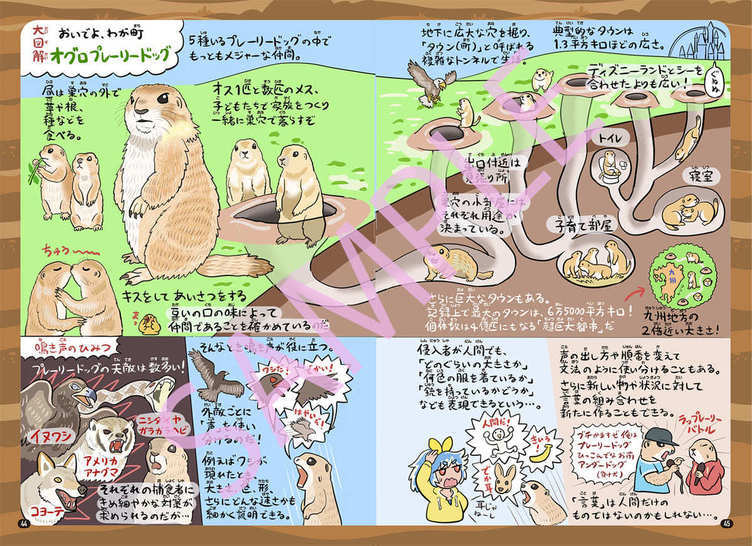 大図解
おいでよ、わが町
オグロプレーリードッグ
5種いるプレーリードッグの中で
もっともメジャーな仲間。
昼は巣穴の外で
草や根、
種などを
食べる。
オス1匹と数匹のメス、
子どもたちで家族をつくり
一緒に巣穴で暮らすぞ
ちゅっ
キスをして あいさつをする
互いの口の味によって
仲間であることを確かめているのだ
地下に広大な穴を掘り、
「タウン(町)」と呼ばれる
複雑なトンネルで生
典型的なタウンは
1.3平方キロほどの広さ。
ディズニーランドとシーを
合わせたよりも広い!
ぐぬぬ
出口付近は
見張り所
トイレ
寝室
巣穴の小部屋には
それぞれ用途が
決まっている。
子育て部屋
さらに巨大なタウンもある。
記録上で最大のタウンは、6万5000平方キロ!
個体数は4億匹にもなる「超巨大都市」だ
九州
九州地方の
2倍近い大きさ!
鳴き声のひみつ
プレーリードッグの天敵は数多い!
イヌワシ
アメリカ
アナグマ
ニシダイヤ
ガラガラヘビ
コヨーテ
それぞれの捕食者に
きめ細やかな対策が
求められるのだが…
そんなとき鳴き声が役に立つ。
外敵ごとに
「声」も使い
分けるのだ!
ワシだ!
でかい!
はやいぞ!
例えばワシが
現れたとき
大きさ 形
さらにどんな速さかも
細かく説明できる。
侵入者が人間でも、
「どのぐらいの大きさか」
「何色の服を着ているか」
「銃を持っているかどうか」
なども表現できるという…。
人間だ!
きいろ!
でか耳
耳じゃ
ねーし
声の出し方や順番を変えて
文法のように使い分けることもある。
さらに新しい物や状況に対して
言葉の組み合わせを
新たに作ることもできる。
ラップレーリー
バトル
ブチかますぜ俺は
プレーリードッグ
ひっこんでなお前
アンダードッグ
「言葉」は人間だけの
ものではないのかもしれない…。
44
45
SAMPLE